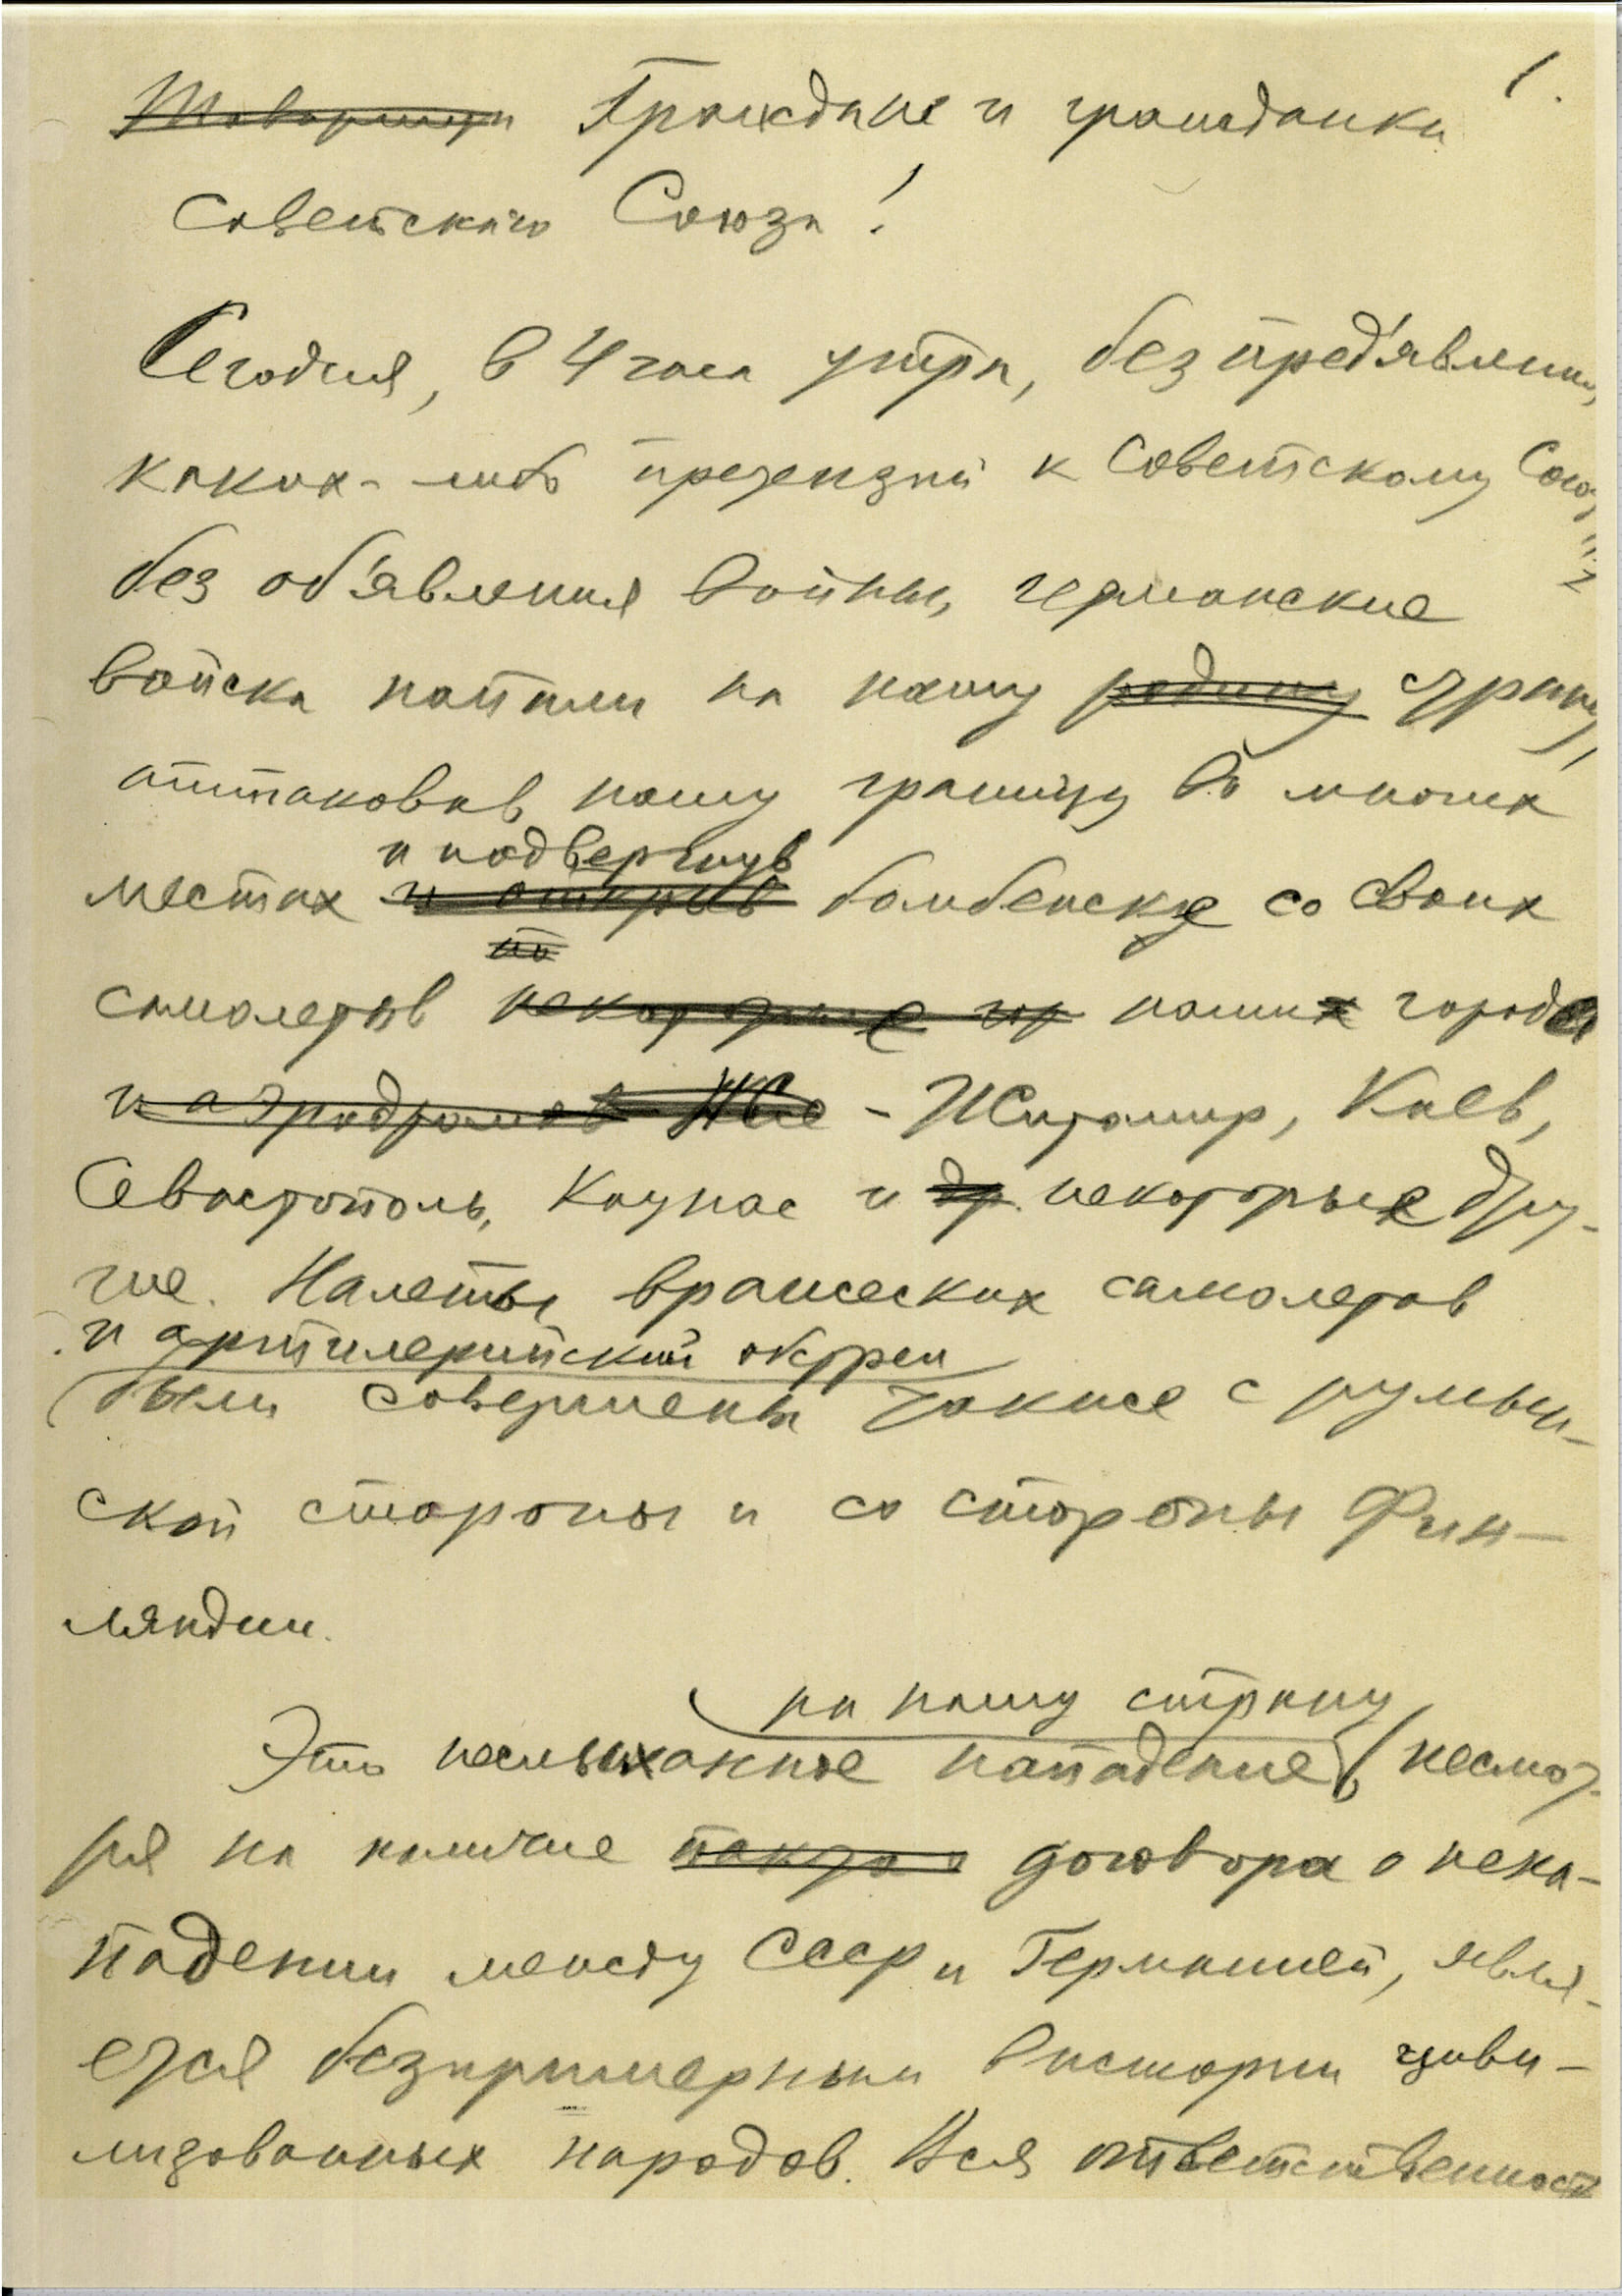 1.
Товарищи Граждане и гражданки
Советского Союза!
Сегодня, в 4 часа утра, без пред'явления
каких-либо претензий к Советскому Союзу
без об'явления войны, германские
войска напали на нашу родину страну,
аттаковав нашу границу во многих
и подвергнув
местах и открыв бомбежке со своих
по
самолетов некоторые гор наши города
и аэродромов Жи - Житомир, Киев,
Севастополь, Каунас и др. некоторые дру-
гие. Налеты вражеских самолетов
и артилерийский обстрел
были совершены также с румын-
ской стороны и со стороны Фин-
ляндии.
на нашу страну
Это неслыханное нападение, несмот-
ря на наличие пакта о договора о нена-
падении между СССР и Германией, явля-
ется безпримерным в истории циви-
лизованных народов. Вся ответственность